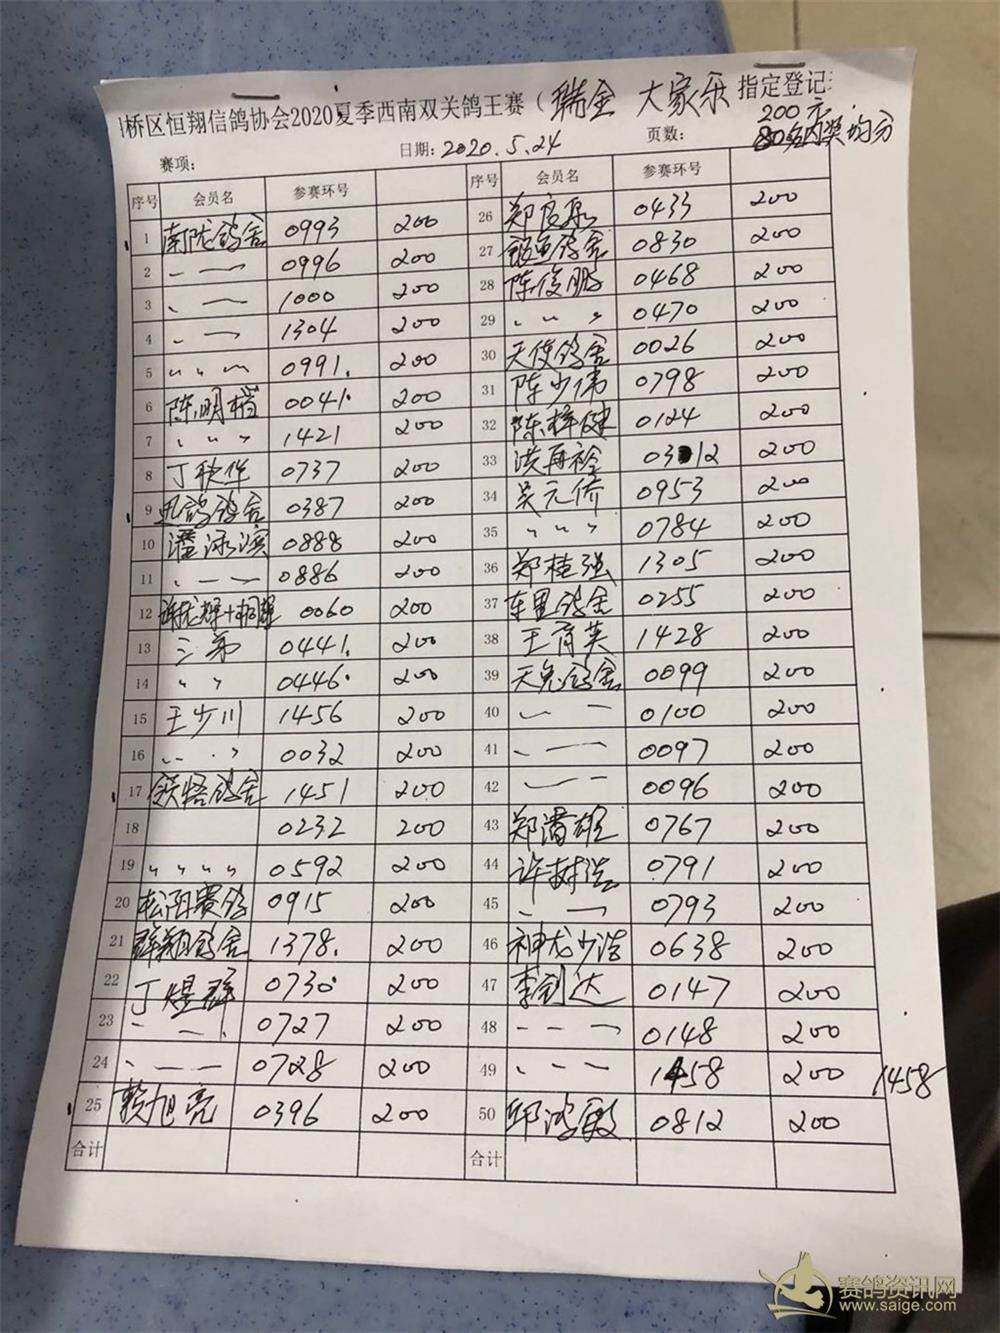 桥区恒翔信鸽协会2020夏季西南双关鸽王赛（瑞金 大家乐 指定登记
200元
80名内奖均分
赛项： 日期：2020.5.24 页数：
序号 会员名 参赛环号 序号 会员名 参赛环号
1 南陇鸽舍 0993 200 26 郑良 0433 200
2 〃 0996 200 27 鸽舍 0830 200
3 〃 1000 200 28 陈俊鹏 0468 200
4 〃 1304 200 29 〃 〃 〃 0470 200
5 〃 〃 〃 0991. 200 30 天使鸽舍 0026 200
6 陈明 0041. 200 31 陈少伟 0798 200
7 〃 〃 〃 1421 200 32 陈梓健 0124 200
8 丁秋华 0737 200 33 洪再裕 03 12 200
9 迅鸽鸽舍 0387 200 34 吴元侨 0953 200
10 潘泳滨 0888 200 35 〃 〃 〃 0784 200
11 〃 0886 200 36 郑桂强 1305 200
12 许龙辉+ 0060 200 37 车里鸽舍 0255 200
13 三弟 0441. 200 38 王育英 1428 200
14 〃 〃 0446. 200 39 天兔鸽舍 0099 200
15 王少川 1456 200 40 〃 0100 200
16 〃 〃 0032 200 41 〃 0097 200
17 鸽舍 1451 200 42 〃 0096 200
18 0232 200 43 郑潘雄 0767 200
19 〃 〃 〃 〃 0592 200 44 许树浩 0791 200
20 松阳赛鸽 0915 200 45 〃 0793 200
21 群翔鸽舍 1378. 200 46 神龙少浩 0638 200
22 丁煜群 0730. 200 47 李剑达 0147 200
23 〃 0727 200 48 〃 0148 200
24 〃 0728 200 49 〃 1458 200 1458
25 赖旭亮 0396 200 50 邱鸿敏 0812 200
合计 合计
赛鸽资讯网
www.saige.com